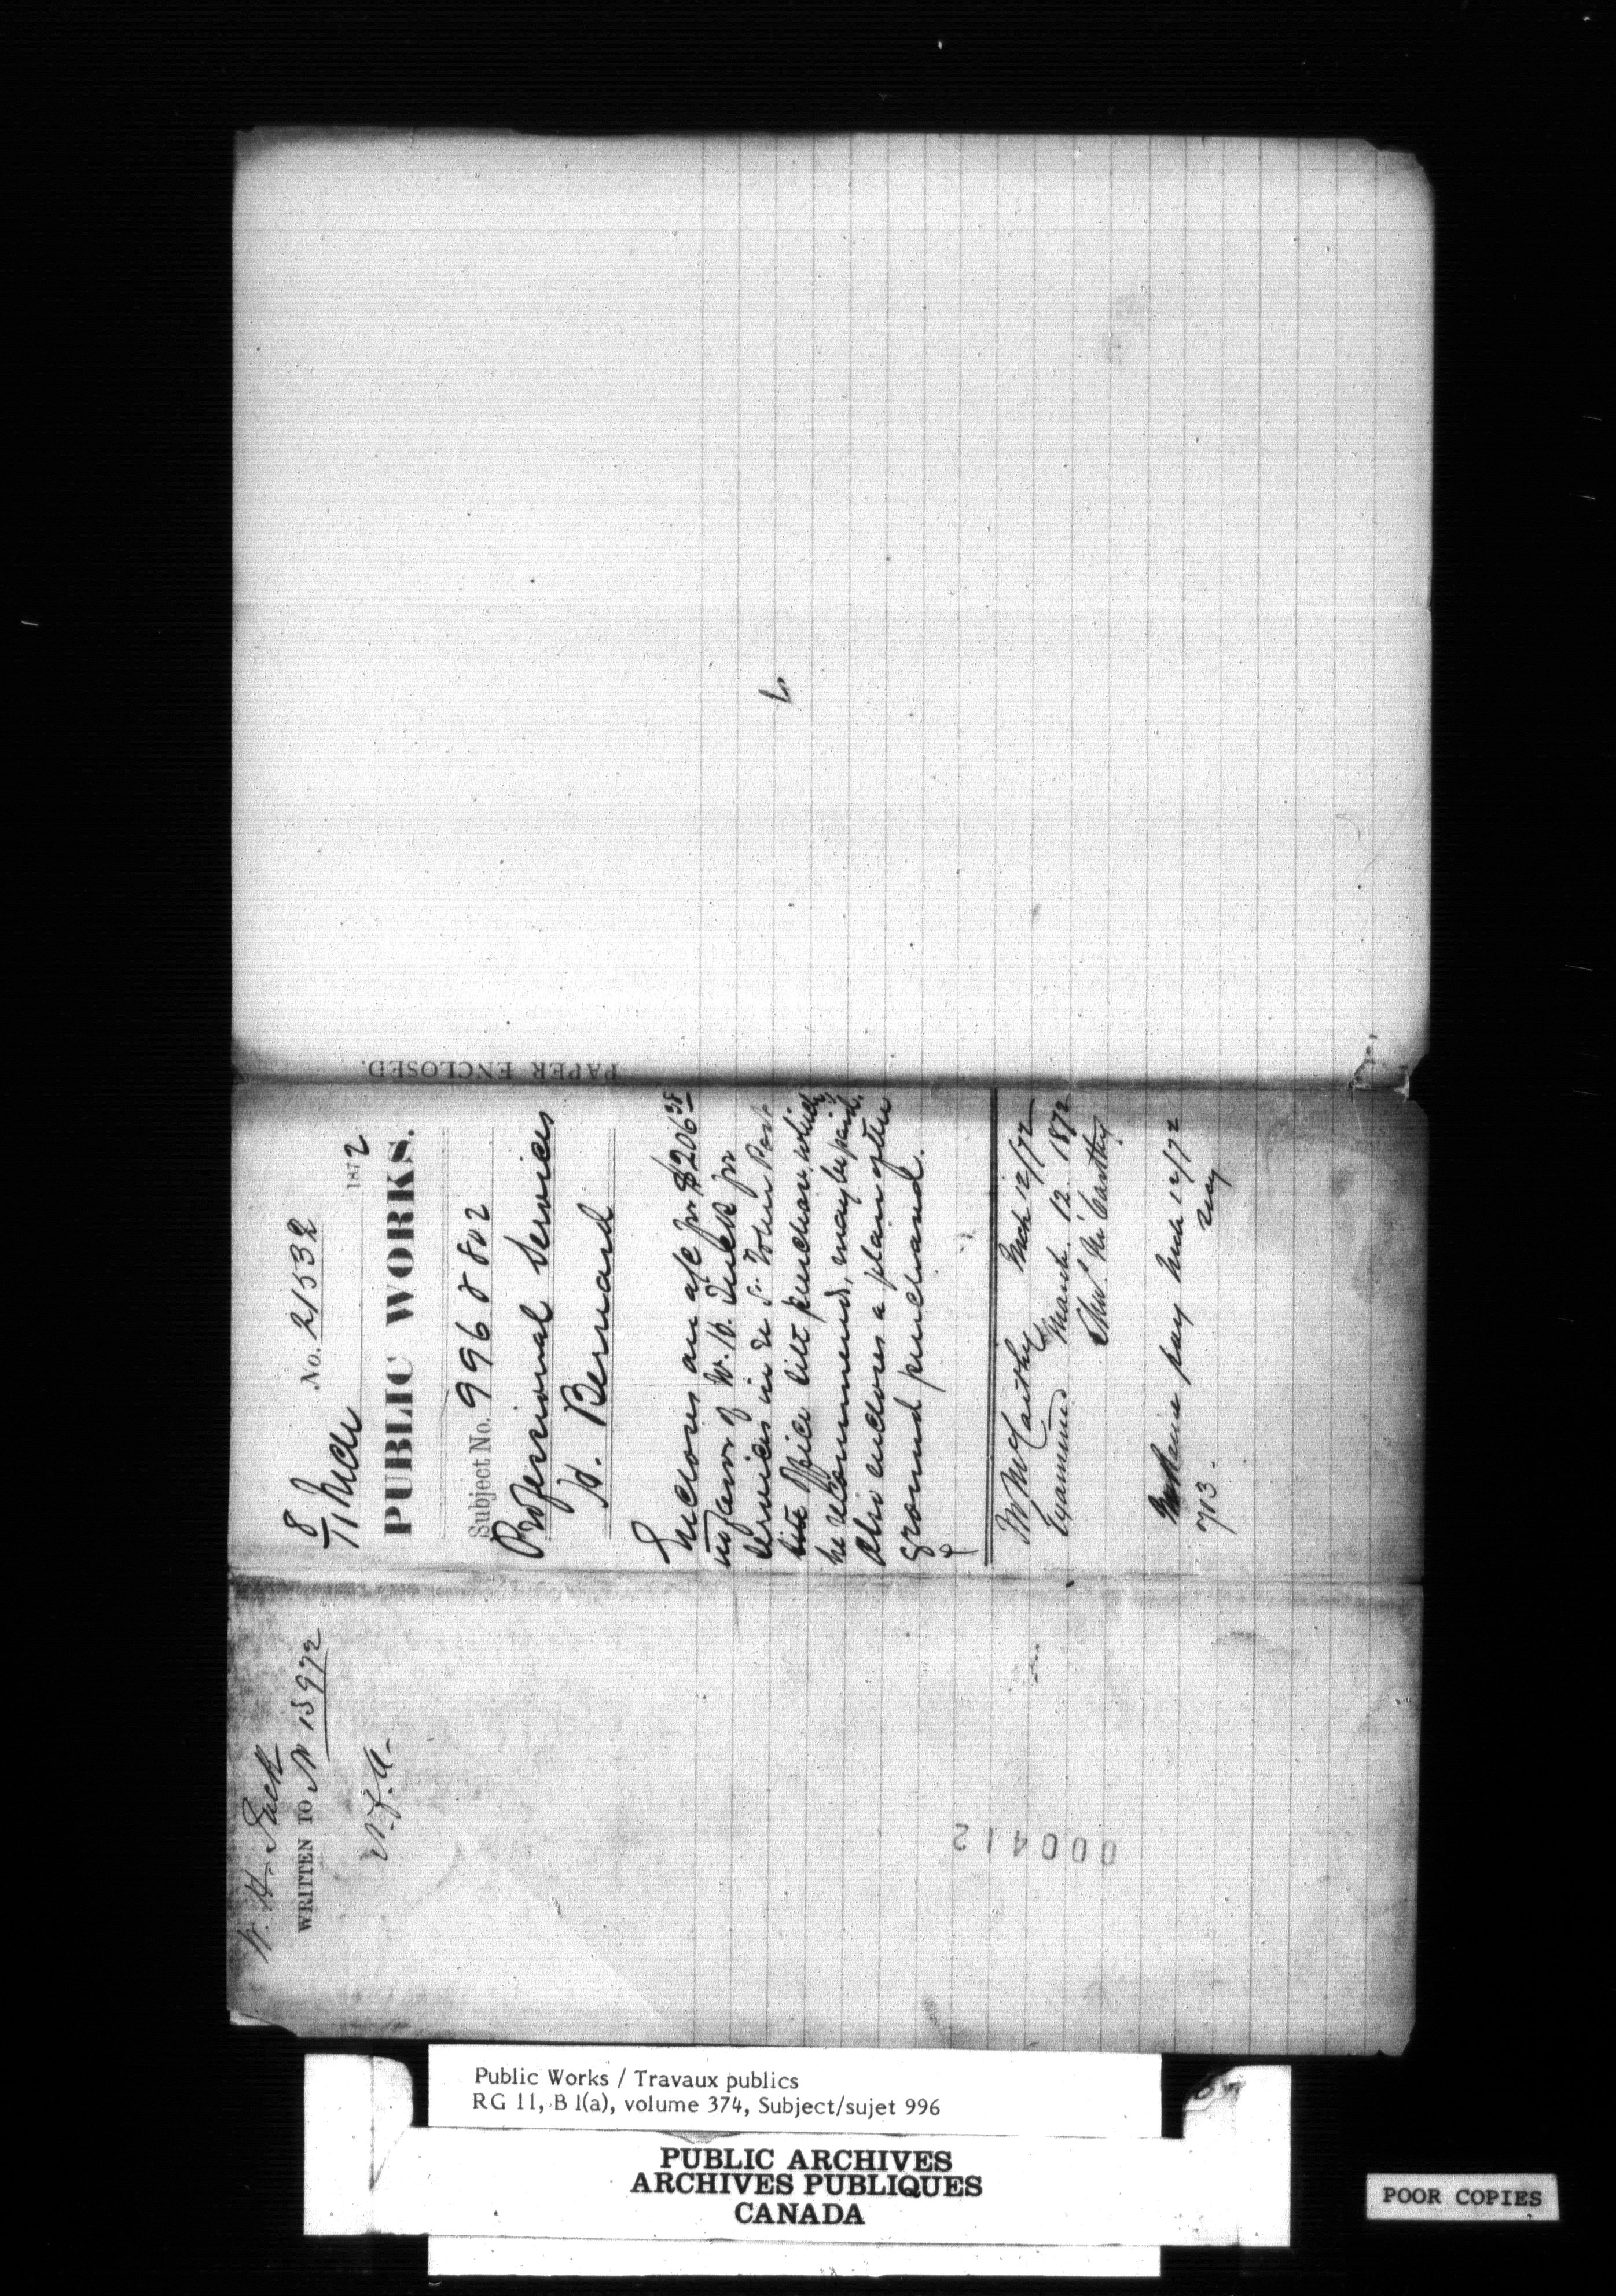 W. H. Tuck
WRITTEN TO No 15972
N.F.A.
No. 21532
8
11 Mch 1872
PUBLIC WORKS.
Subject No. 996 & 802
Professional Services
H. Bernard
Incloses an a/c for $206 38
in favor of W. H. Tuck for
services in re St. John Post
Office site purchase, which
he recommends, may be paid.
Also encloses a plan of the
ground purchased.
Mr McCarthy Mch 12/72
Examined March. 12. 1872
Chas. McCarthy
pay Mch 12/72
713.
PAPER ENCLOSED.
000412
Public Works / Travaux publics
RG 11, B 1(a), volume 374, Subject/sujet 996
PUBLIC ARCHIVES
ARCHIVES PUBLIQUES
CANADA
POOR COPIES